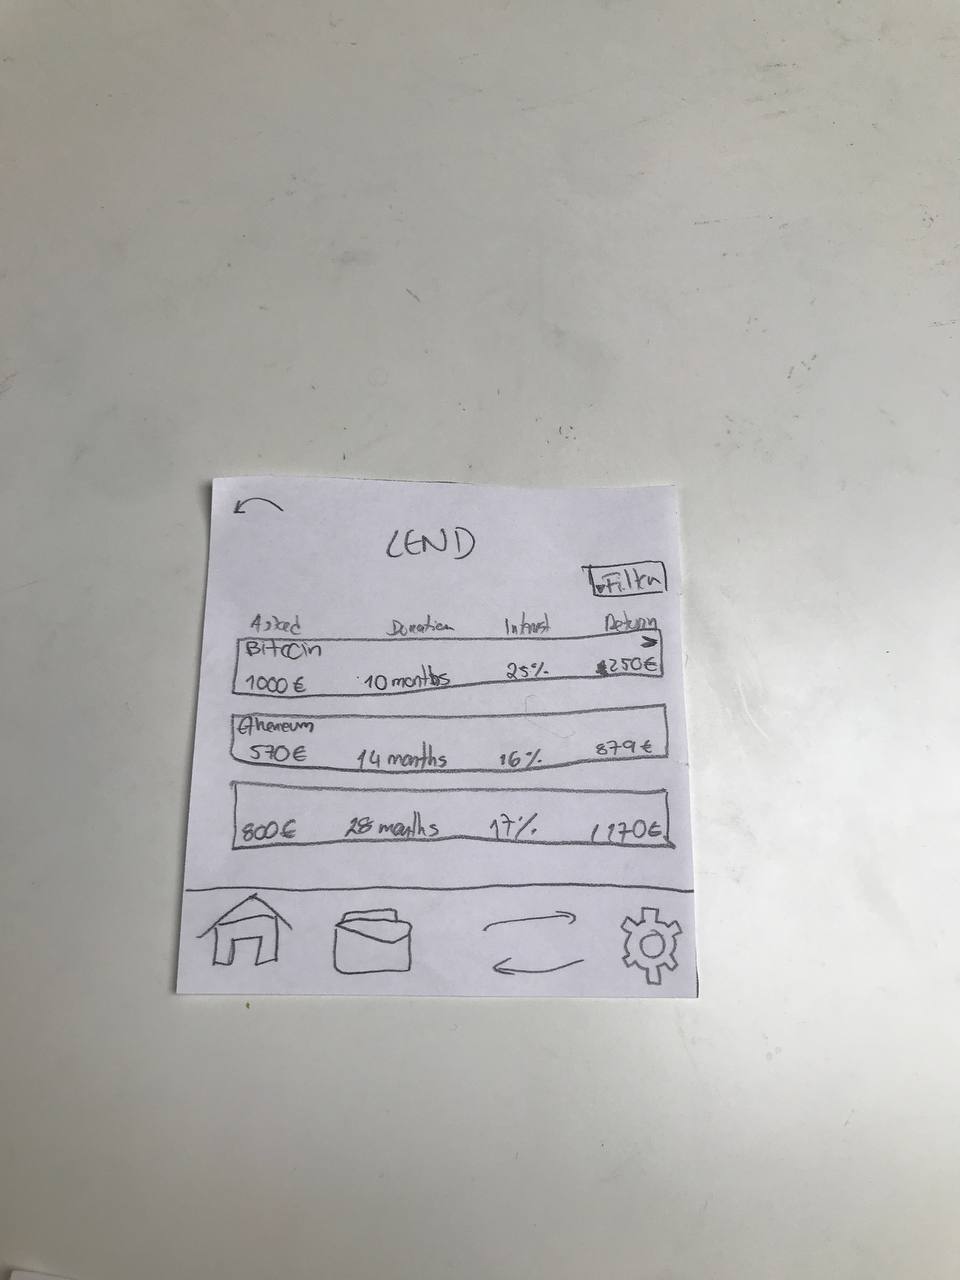 LEND
Filter
Asked Duration Intrest Return
Bitcoin >
1000 € 10 months 25% 1250 €
Ethereum
570 € 14 months 16% 879 €
800 € 28 months 17% 1170 €